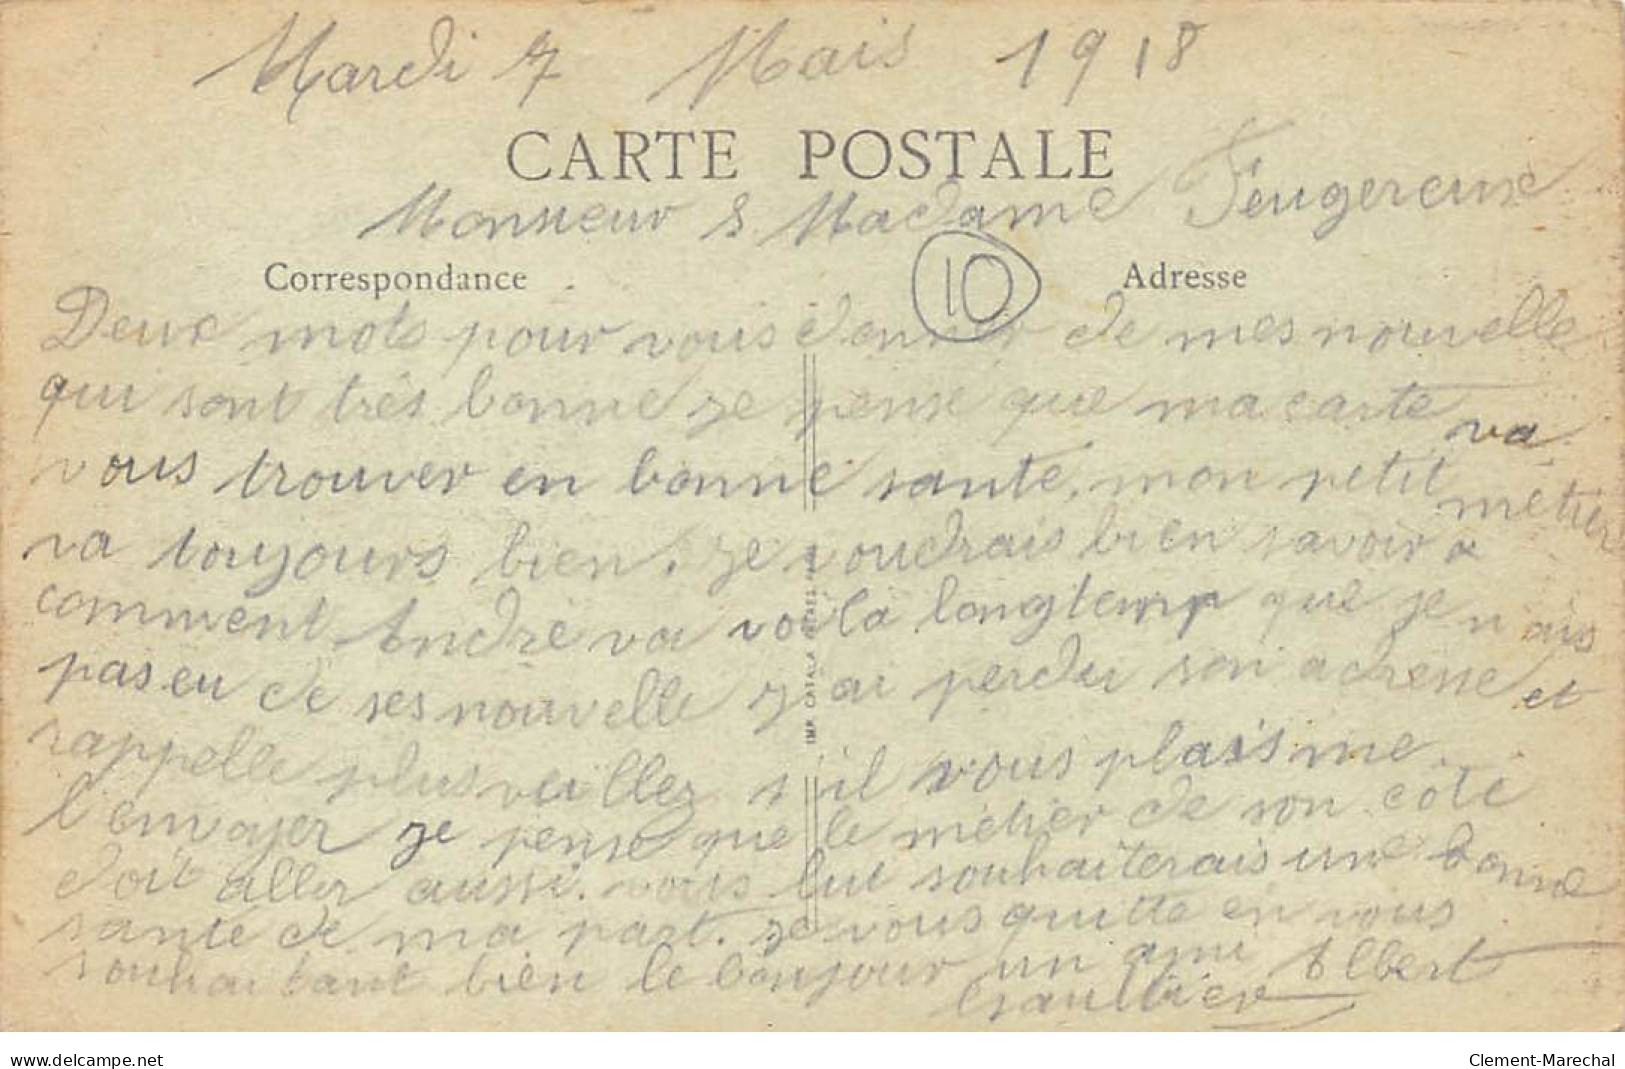 Mardi 7 Mais 1918
CARTE POSTALE
Monsieur & Madame Feugereux
Correspondance
Adresse
10
Deux mots pour vous donner de mes nouvelle
qui sont très bonne je pense que ma carte va
vous trouver en bonne santé, mon petit métier
va toujours bien. je voudrais bien savoir
comment André va voila longtemp que je n ais
pas eu de ses nouvelle j ai perdu son adresse et
rappelle plus veillez s il vous plais me
l envoyer je pense que le métier de son coté
doit aller aussi. vous lui souhaiterais une bonne
santé de ma part. je vous quitte en vous
souhaitant bien le bonjour un ami Albert
Gaultier
IMP. CATALA FRERES
www.delcampe.net
Clement-Marechal